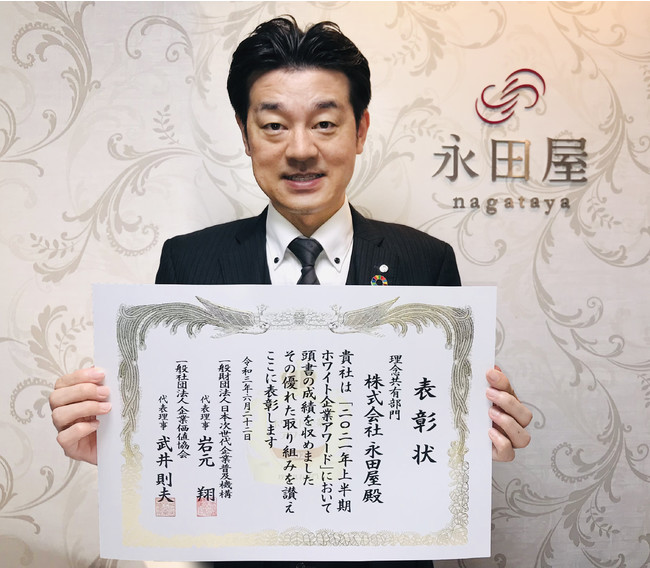 永田屋
nagataya
表彰状
理念共有部門
株式会社 永田屋 殿
貴社は「二〇二一年上半期
ホワイト企業アワード」において
頭書の成績を収めました
その優れた取り組みを讃え
ここに表彰します
令和三年六月二十二日
一般財団法人日本次世代企業普及機構
代表理事 岩元 翔
一般社団法人企業価値協会
代表理事 武井則夫